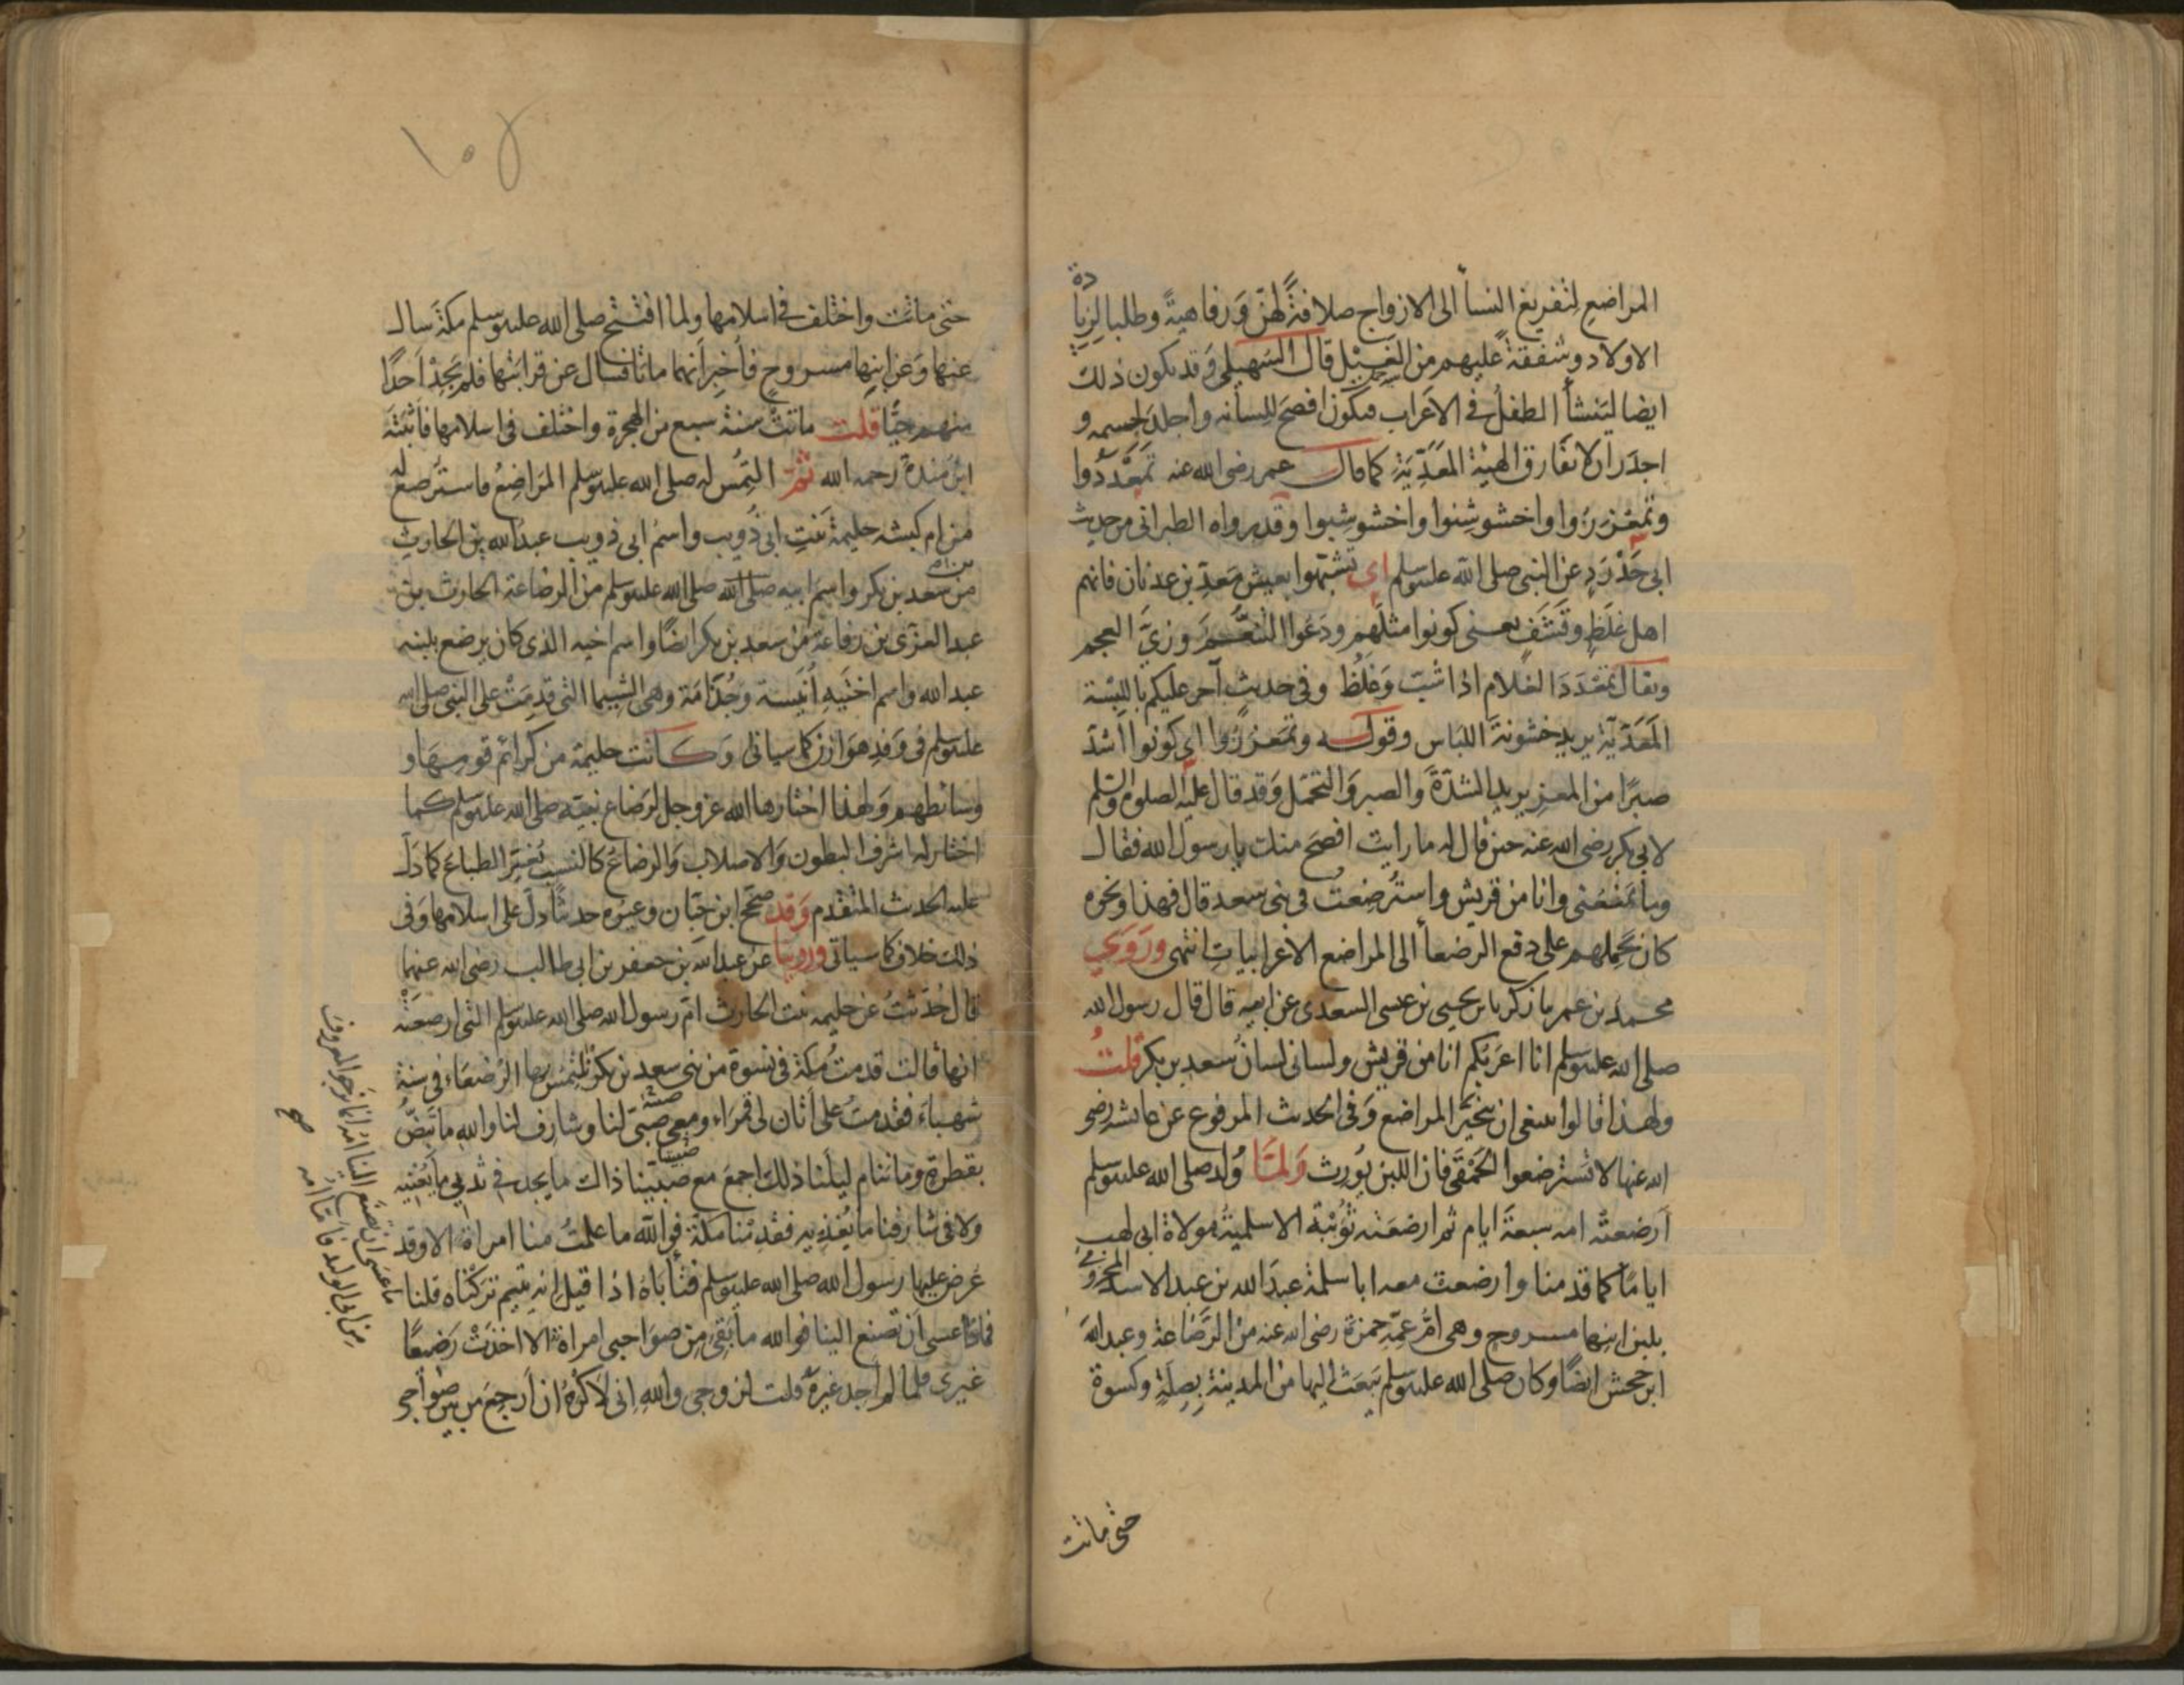 المراضع لتفريغ النسأ الى الازواج صلافةً لهنّ وَرفاهيةً وطلبا لزيادة
الاولاد وشفقةً عليهم من الغَيْل قال السّهيلى وَقد يكون ذلك
ايضا ليَنشأ الطفلُ فى الاعَراب فيكون افصحَ للِسانه واجلدَ لجسمه و
اجدَر ان لا يفارق الهيْة المعَدِّيَّة كما قال عمر رضى الله عنه تمَعْدَدُوا
وتمعْزَزوا واخشوشِنوا واخشوشبوا وقد رواه الطبرانى من حديث
ابى حَدْرَدٍ عن النبى صلى الله عليه وسلم اى تشبّهوا بعيش مَعَدِّ بن عدنان فانهم
اهل غلَظٍ وقَشَفٍ يعنى كونوا مثلَهم ودَعوا التنعُّم وزىَّ العجم
ويقال تمعْدَدَ الغلام اذا شبّ وَغلُظ وفى حديثٍ آخر عليكم باللِبْسة
المَعَدّيّة يريد خشونةَ اللباس وقوله وتمعزَزُوا اى كونوا اشدّ
صبرًا من المعز يريد الشدّةَ والصبر وَالتحمّل وَقد قال عليه الصلوة والسّلم
لابى بكر رضى الله عنه حين قال له ما رايت افصحَ منك يا رسول الله فقال
وما يَمْنَعنى وانا من قريش واستُرضِعتُ فى بنى سعد قال فهذا ونحوه
كان يحملهم على دفع الرّضعأ الى المراضع الاعرابيات انتهى ورَوَى
محمد بن عمر نا زكريا بن يحيى بن عيسى السعدى عن ابيه قال قال رسول الله
صلى الله عليه وسلم انا اعرَبُكم انا من قريش ولسانى لسانُ سعد بن بكر قلتُ
ولهذا قالوا ينبغى ان يتخيّر المراضع وَفى الحديث المرفوع عن عايشه رضى
الله عنها لا تَسترضعوا الحَمْقَى فان اللبن يُورِث وَلمّا وُلد صلى الله عليه وسلم
اَرضعتْه امه سبعةَ ايام ثم ارضعَته ثُوَيْبَة الاسلمية مولاة ابى لهب
اياما كما قدمنا وارضعت معه ابا سلمة عبدَ الله بن عبد الاسد المخزومى
بلبن ابنها مسروح وهى امُّ عمِّه حمزة رضى الله عنه من الرَّضاعة وعبد الله
ابن جحش ايضًا وكان صلى الله عليه وسلم يَبعَث اليها من المدينة بِصِلَةٍ وكسوة
حتى ماتت
١٥٧
حتى ماتت واختلف فى اسلامها ولما افتتح صلى الله عليه وسلم مكة سال
عنها وَعن ابنها مسروح فاُخبِر اَنهما ماتا فسال عن قرابتها فلم يَجِدْ اَحدًا
منهم حيًّا قلت ماتت سنة سبع من الهجرة واختلف فى اسلامها فاَثبَتَه
ابنُ مندة رحمه الله ثمّ التُمِس له صلى الله عليه وسلم المَراضعُ فاسترُضع له
من ام كبشه حليمة بَنتِ ابى ذُويب واسمُ ابى ذويب عبدُ الله بن الحارث
من سعد بن بكر واسمُ ابيه صلى الله صلى الله عليه وسلم من الرضاعة الحارث بن
عبد العزّى بن رفاعة من سعد بن بكر ايضًا واسم اخيه الذى كان يرضع بلبنه
عبد الله واسم اختَيهِ اُنَيسة وجُذامَة وهى الشيما التى قدِمَتْ على النبى صلى الله
عليه وسلم فى وَفدِ هوَازن كما سياتى وَكانت حليمة من كرائم قومِهَا و
وسائطهم وَلهذا اختارها الله عز وجل لرَضاع نبيّه صلى الله عليه وسلم كما
اختار له اشرف البطون وَالاصلاب وَالرضاعُ كالنسب يُغيّر الطباعَ كما دَلّ
عليه الحديث المتقدم وَقد صحّح ابن حبّان وغيرُه حديثًا دلّ على اسلامها وَفى
ذلك خلاف كما سياتى وروينا عن عبد الله بن جعفر بن ابى طالب رضى الله عنهما
قال حُدّثتُ عن حليمه بنت الحارث امّ رسول الله صلى الله عليه وسلم التى ارضعَتْه
انها قالت قدمتُ مكةَ فى نسوة من بنى سعد بن بكر نلتمسُ بها الرُضعَاء فى سنة
شهباءَ فقدمتُ على اَتان لى قَمرَاء ومعى صبىّ لنا وشارف لنا والله ما تَبِضّ
بقطرةٍ وما ننام ليلَنا ذلك اجمعَ مع صبيّينا ذاك ما يجد فى ثديى ما يُغنيه
ولا فى شارفنا ما يُغذيه فقدِمنا مكة فوالله ما علمتُ منا امراة الا وقد
عُرض عليها رسول الله صلى الله عليه وسلم فتأباهُ اذا قيل انه يتيم تركناه قلنا
ماذا عسى اَن تصنع الينا فوالله ما بَقِى مِن صوَاحبى امراة الا اخذتْ رَضيعًا
غيرى فلما لم اجد غيرَهُ قلت لزوجى والله انى لاَكرهُ ان اَرجعَ من بين صوَاحبى
ما عسى ان تصنع الينا امّه انما نرجو المعروف
من ابى الولد فامّا امّه
صح